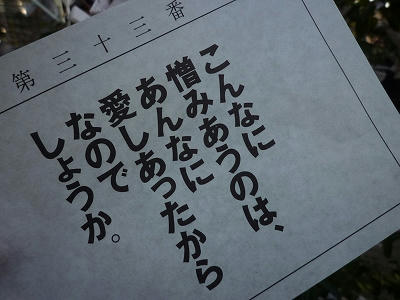 第三十三番
こんなに
憎みあうのは、
あんなに
愛しあったから
なので
しょうか。